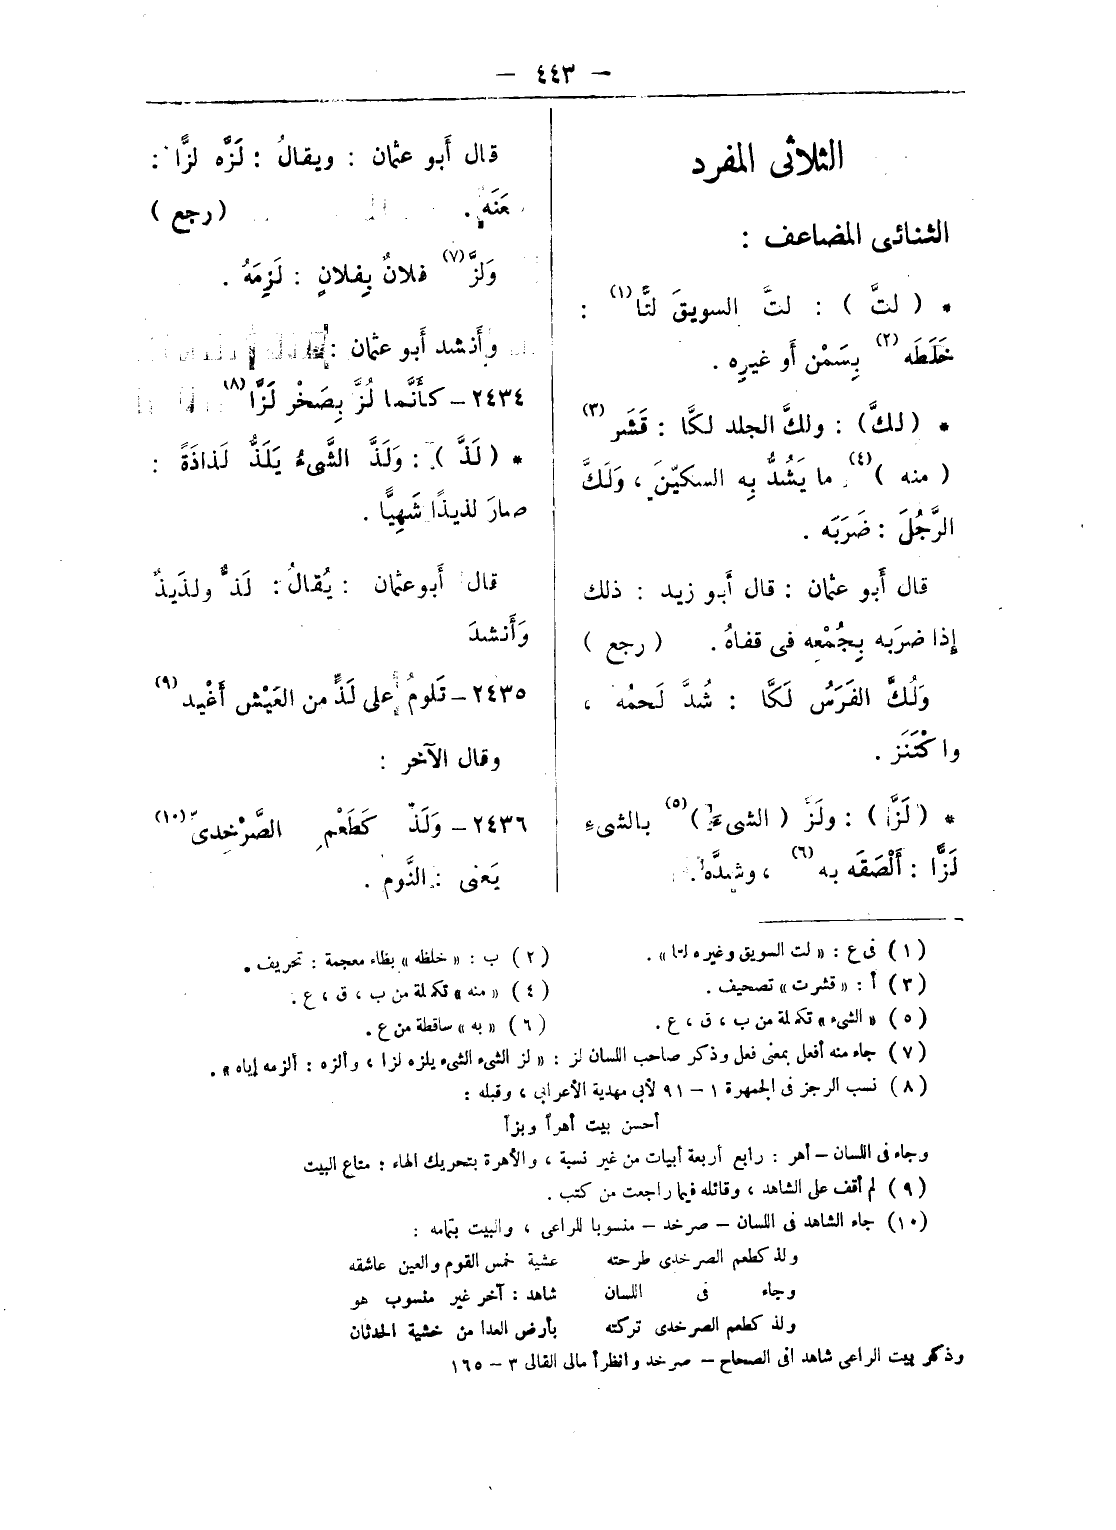 — ٤٤٣ —
الثلاثى المفرد
الثنائى المضاعف :
* ( لتَّ ) : لتَّ السويقَ لتًّا(١) :
خَلَطَه(٢) بِسَمْن أو غيرِه .
* ( لكَّ ) : ولكَّ الجلد لكًّا : قَشَر(٣)
( منه )(٤) ما يَشُدُّ بِه السكيّنَ ، وَلَكَّ
الرَّجُلَ : ضَرَبَه .
قال أَبو عثمان : قال أَبو زيد : ذلك
إِذا ضرَبه بِجُمْعِه فى قفاهُ . ( رجع )
وَلُكَّ الفَرَسُ لَكًّا : شُدَّ لَحمُه ،
واكْتَنَزَ .
* ( لَزَّ ) : ولَزَّ ( الشىءَ )(٥) بالشىءِ
لَزًّا : أَلْصَقَه به(٦) ، وشدَّه .
قال أَبو عثمان : ويقالُ : لَزَّه لزًّا :
( رجع )
وَلزَّ(٧) فلانٌ بِفلانٍ : لَزِمَهُ .
وأَنشد أَبو عثمان :
٢٤٣٤ – كأَنَّما لُزَّ بِصَخْر لَزَّا(٨)
* ( لَذَّ ) : وَلَذَّ الشَّىءُ يَلَذُّ لَذاذَةً :
صارَ لذيذًا شَهِيًّا .
قال أَبو عثمان : يُقالُ : لَذٌّ ولذَيذٌ
وَأَنشدَ
٢٤٣٥ – تَلومُ على لَذٍّ من العَيْش أَغْيد(٩)
وقال الآخر :
٢٤٣٦ – وَلَذّ كَطَعْمِ الصَّرْخدىّ(١٠)
يَعنى : النَّوم .
(١) فى ع : « لت السويق وغيره لتا » .
(٢) ب : « خلظه » بظاء معجمة : تحريف .
(٣) أ : « قشرت » تصحيف .
(٤) « منه » تكملة من ب ، ق ، ع .
(٥) « الشىء » تكملة من ب ، ق ، ع .
(٦) « به » ساقطة من ع .
(٧) جاء منه أفعل بمعنى فعل وذكر صاحب اللسان لز : « لز الشىء الشىء يلزه لزا ، وألزه : ألزمه إياه » .
(٨) نسب الرجز فى الجمهرة ١ – ٩١ لأبى مهدية الأعرابى ، وقبله :
أحسن بيت أهراً وبزاً
وجاء فى اللسان – أهر : رابع أربعة أبيات من غير نسبة ، والأهرة بتحريك الهاء : متاع البيت
(٩) لم أقف على الشاهد ، وقائله فيما راجعت من كتب .
(١٠) جاء الشاهد فى اللسان – صرخد – منسوبا للراعى ، والبيت بتمامه :
ولذ كطعم الصرخدى طرحته عشية خمس القوم والعين عاشقه
وجاء فى اللسان شاهد : آخر غير منسوب هو
ولذ كطعم الصرخدى تركته بأرض العدا من خشية الحدثان
وذكر بيت الراعى شاهد افى الصحاح – صرخد وانظرأ مالى القالى ٣ – ١٦٥